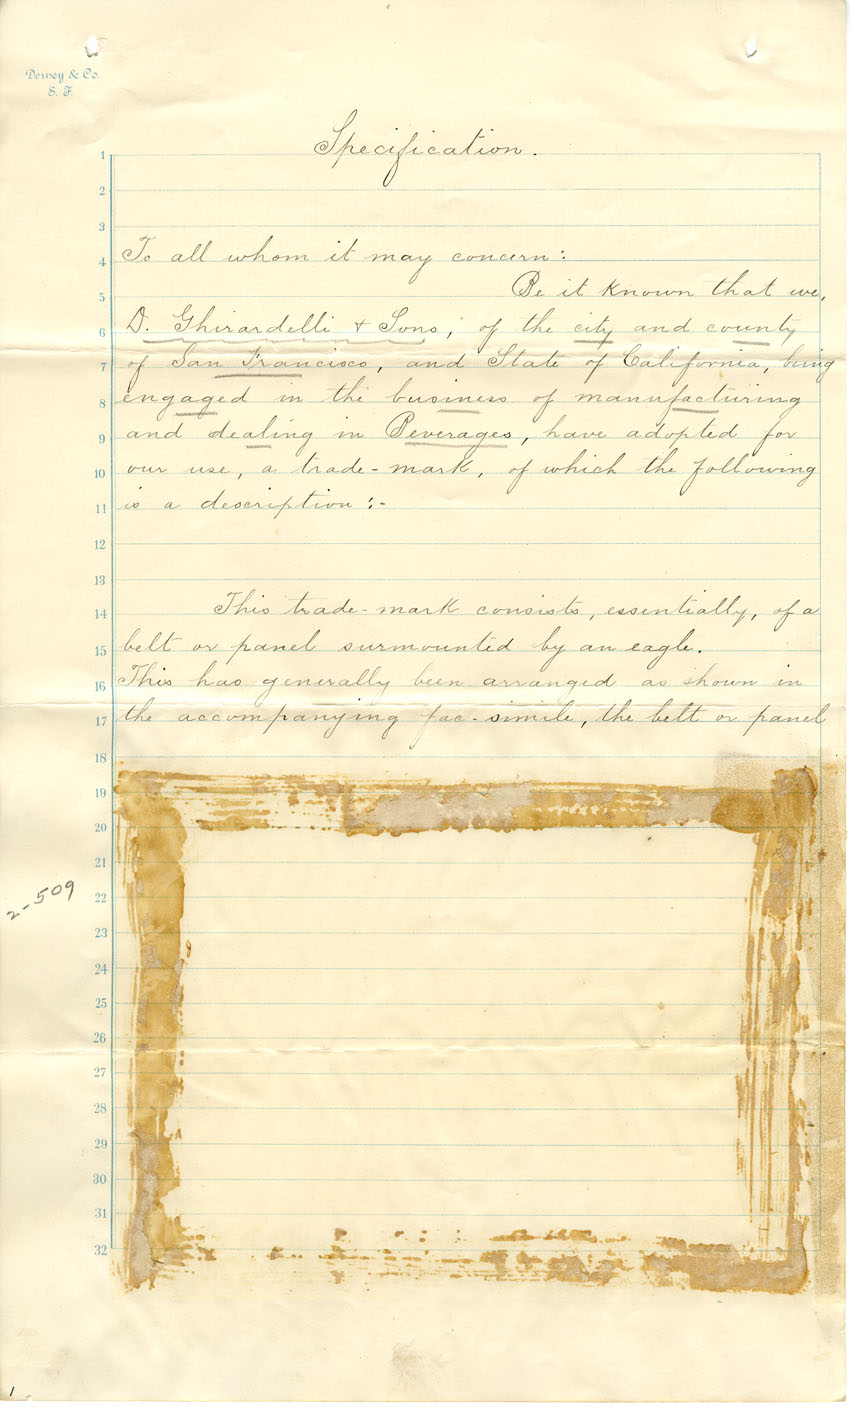 Dewey & Co.
S. F.
Specification.
1
2
3
4 To all whom it may concern:
5 Be it known that we,
6 D. Ghirardelli & Sons, of the city and county
7 of San Francisco, and State of California, being
8 engaged in the business of manufacturing
9 and dealing in Beverages, have adopted for
10 our use, a trade-mark, of which the following
11 is a description:-
12
13
14 This trade-mark consists, essentially, of a
15 belt or panel surmounted by an eagle.
16 This has generally been arranged as shown in
17 the accompanying fac-simile, the belt or panel
18
19
20
21
22
2-509
23
24
25
26
27
28
29
30
31
32
1